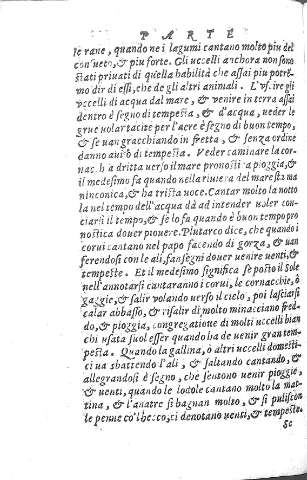 PARTE
le rane, quando ne i lagumi cantano molto piu del
con ueto, & piu forte. Gli uccelli anchora non sono
stati priuati di quella habilità che assai piu potre-
mo dir di essi, che de gli altri animali. L'usire gli
uccelli di acqua dal mare, & uenire in terra assai
dentro è segno di tempesta, & d'acqua, ueder le
grue uolar tacite per l'aere è segno di buon tempo,
& se uan gracchiando in fretta, & senza ordine
danno auiso di tempesta. Veder caminare la cor-
nacchia dritta uerso il mare pronostica pioggia, &
il medesimo fa quando nella riuiera del mare sta ma
ninconica, & ha trista uoce. Cantar molto la notto
la nel tempo dell'acqua dà ad intender uoler con-
ciarsi il tempo, & se lo fa quando è buon tempo pro
nostica douer piouere. Plutarco dice, che quando i
corui cantano nel papo facendo di gorza, & uan
ferendosi con le ali, fan segni douer uenire uenti, &
tempeste. Et il medesimo significa se posto il Sole
nell'annotarsi cantaranno i corui, le cornacchie, ò
gaggie, & salir uolando uerso il cielo, poi lasciarsi
calar abbasso, & risalir di molto minacciano fred-
do, & pioggia, congregatione di molti uccelli bian
chi usata suol esser quando ha de uenir gran tem-
pesta. Quando la gallina, ò altri uccelli domesti-
ci ua sbattendo l'ali, & saltando cantando, &
allegrandosi è segno, che sentono uenir pioggie,
& uenti, quando le lodole cantano molto la mat-
tina, & l'anatre si bagnan molto, & si puliscon
le penne co'l becco, ci denotano uenti, & tempeste.
Se